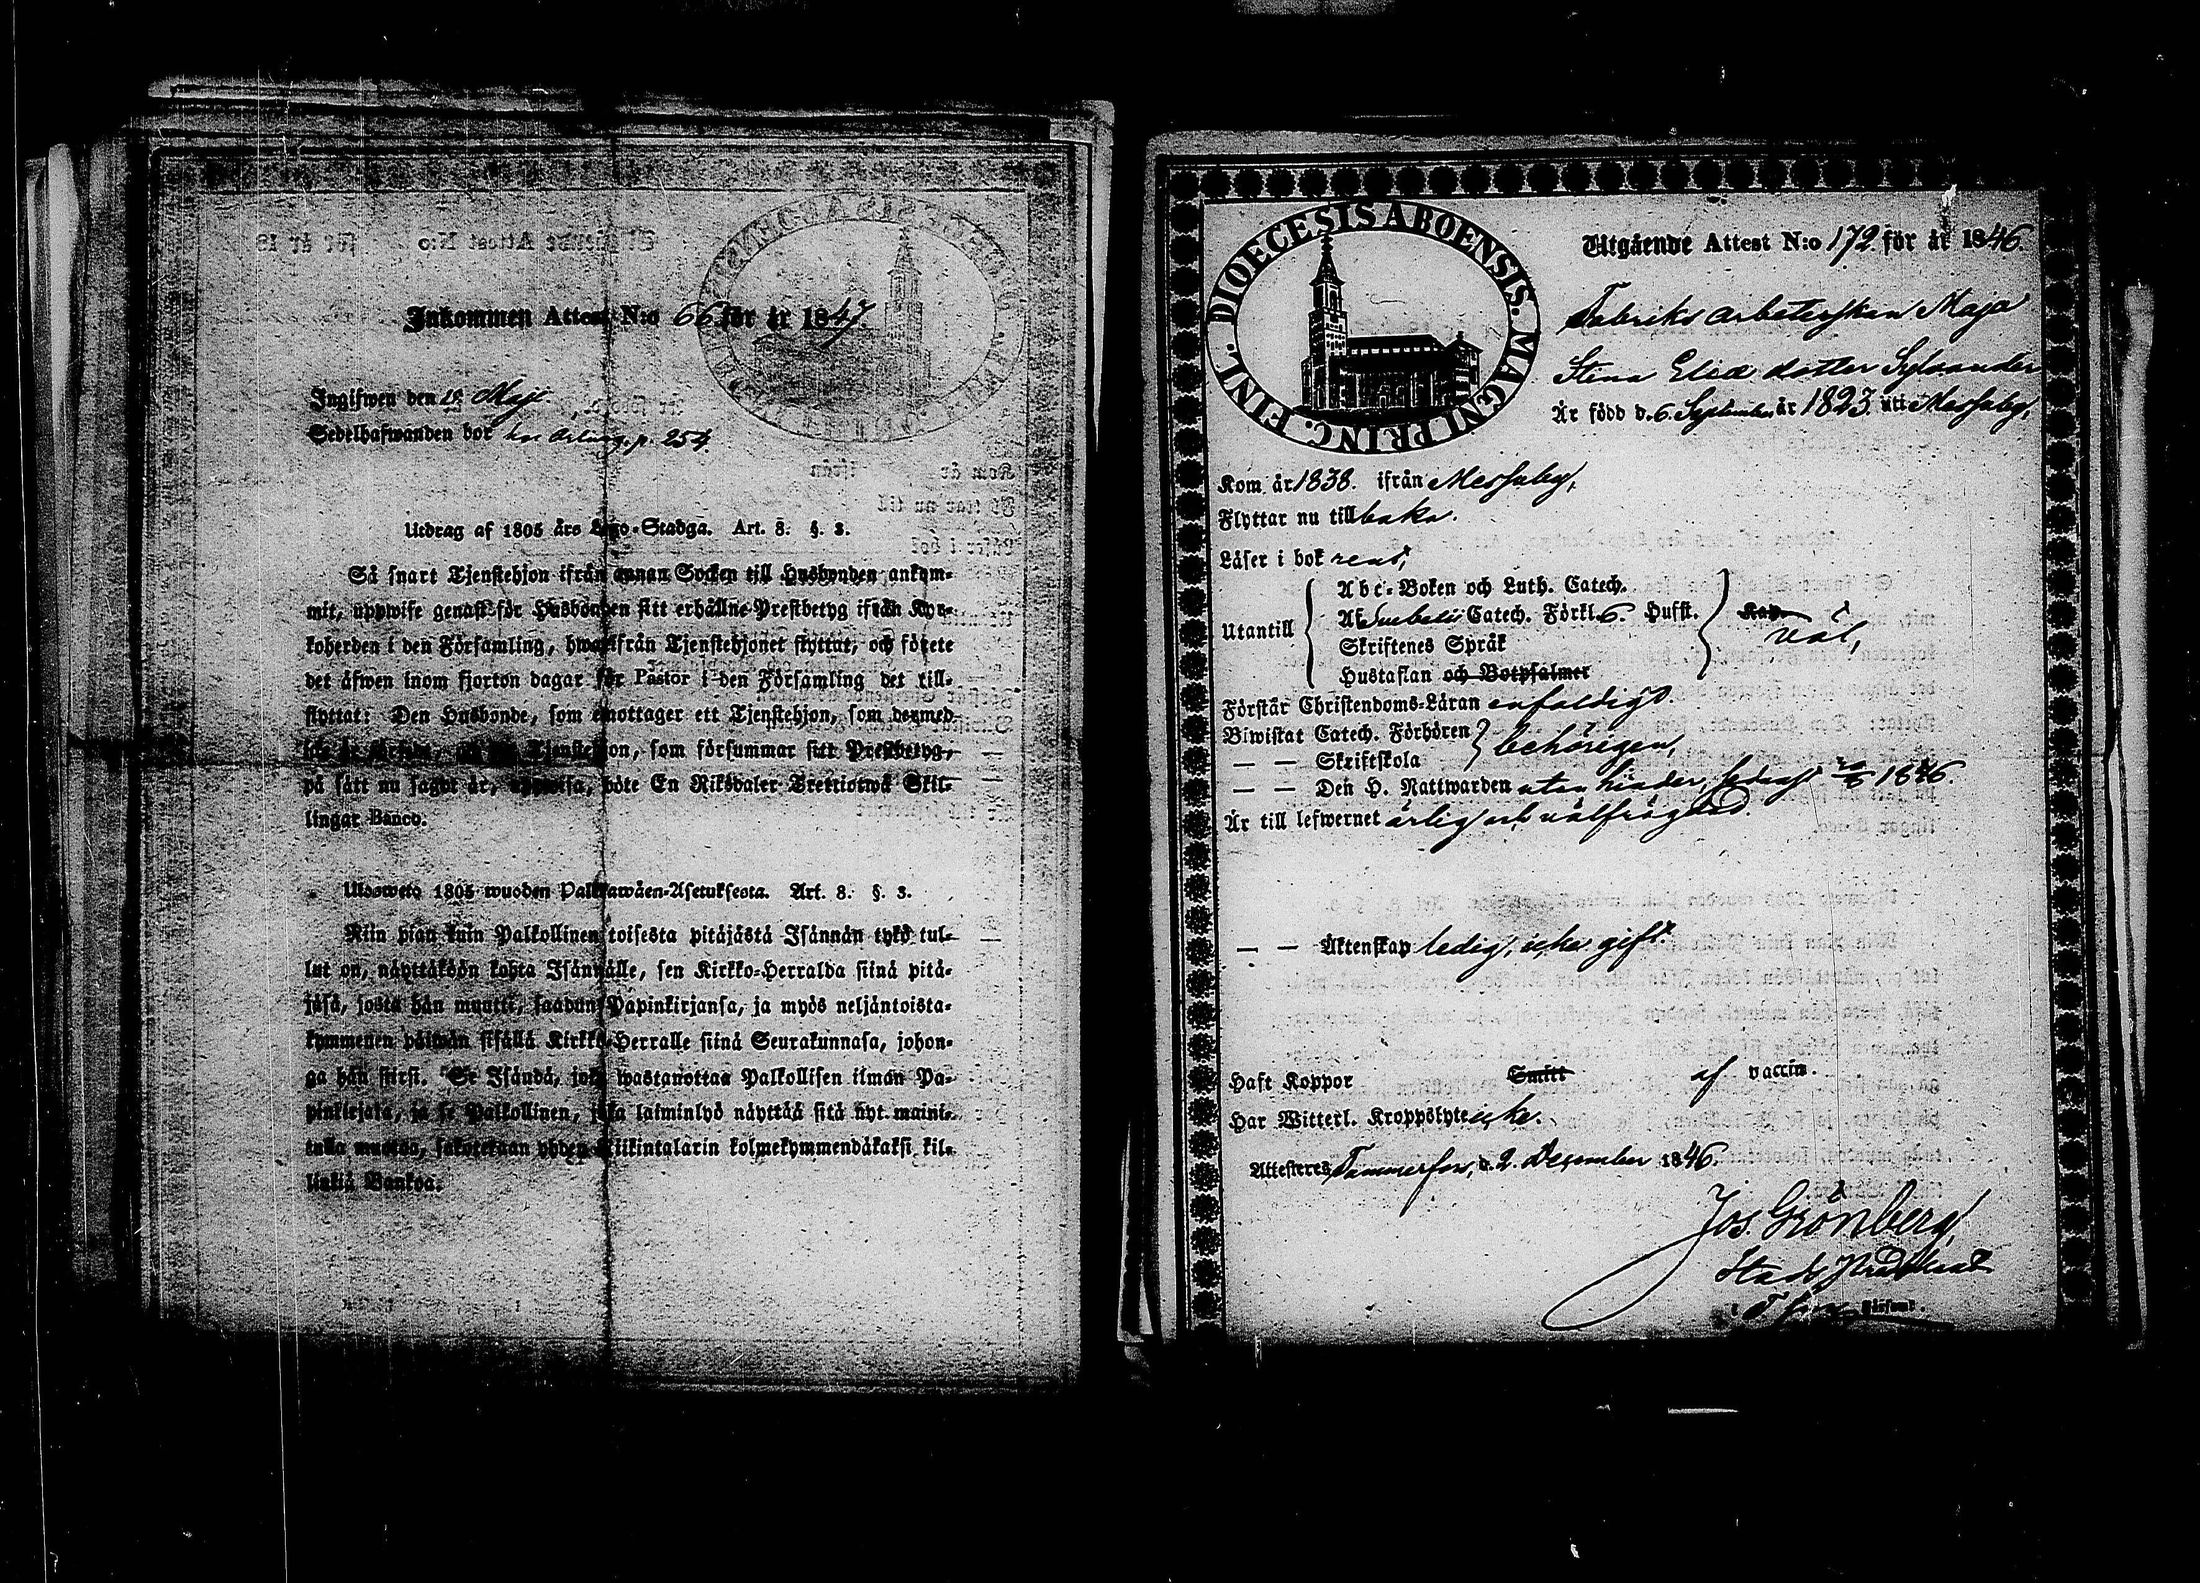 Inkommen Attest N:o 66 för år 1847.
Ingifwen den 19 Maji
Sedelhafwanden bor hos p. 254.
Utdrag af 1805 års Lego-Stadga. Art. 8. §. 3.
Så snart Tjenstehjon ifrån annan Socken till Husbonden ankom-
mit, uppwise genast för Husbonden sitt erhållne Prestbetyg ifrån Kyr-
koherden i den Församling, hwarifrån Tjenstehjonet flyttat, och förete
det äfwen inom fjorton dagar för Pastor i den Församling det till-
flyttat: Den Husbonde, som emottager ett Tjenstehjon, som dermed
icke är försedt, och det Tjenstehjon, som försummar sitt Prestbetyg,
på sätt nu sagdt är, uppwisa, böte En Riksdaler Trettiotwå Skil-
lingar Banco.
Ulosweto 1805 wuoden Palkkawäen-Asetuksesta. Art. 8. §. 3.
Niin pian kuin Palkollinen toisesta pitäjästä Isännän tykö tul-
lut on, näyttäköön kohta Isännälle, sen Kirkko-Herralda siinä pitä-
jäsä, josta hän muutti, saadun Papinkirjansa, ja myös neljäntoista-
kymmenen päiwän sisällä Kirkko-Herralle siinä Seurakunnasa, johon-
ga hän siirsi. Se Isändä, joka wastanottaa Palkollisen ilman Pa-
pinkirjata, ja se Palkollinen, joka laiminlyö näyttää sitä nyt maini-
tulla muotoa, sakotetaan yhden Riikintalarin kolmekymmendäkaksi kil-
linkiä Bankoa.
DIOECESIS ABOENSIS. MAGNI PRINC. FINL.
Utgående Attest N:o 172 för år 1846
Fabriks arbeterskan Maja
Stina Elias dotter Sylvander
Är född d. 6. September år 1823. uti Messuby,
Kom år 1838. ifrån Messuby,
Flyttar nu tillbaka.
Läser i bok rent,
Abc-Boken och Luth. Catech.
Utantill Af Svebelii Catech. Förkl. 6. Hufst. Kan
Skriftenes Språk väl,
Hustaflan och Botpsalmer
Förstår Christendoms-Läran enfaldigt.
Biwistat Catech. Förhören behörigen,
— — Skriftskola
— — Den H. Nattwarden utan hinder, sednast 1846.
Är till lefwernet ärlig och välfrägdad.
— — Äktenskap ledig, icke gift.
Haft Koppor Smitt af vaccin.
Har Witterl. Kroppslyte icke.
Attesteres Tammerfors, d. 2. December 1846.
Jos. Grönberg,
i Församl.